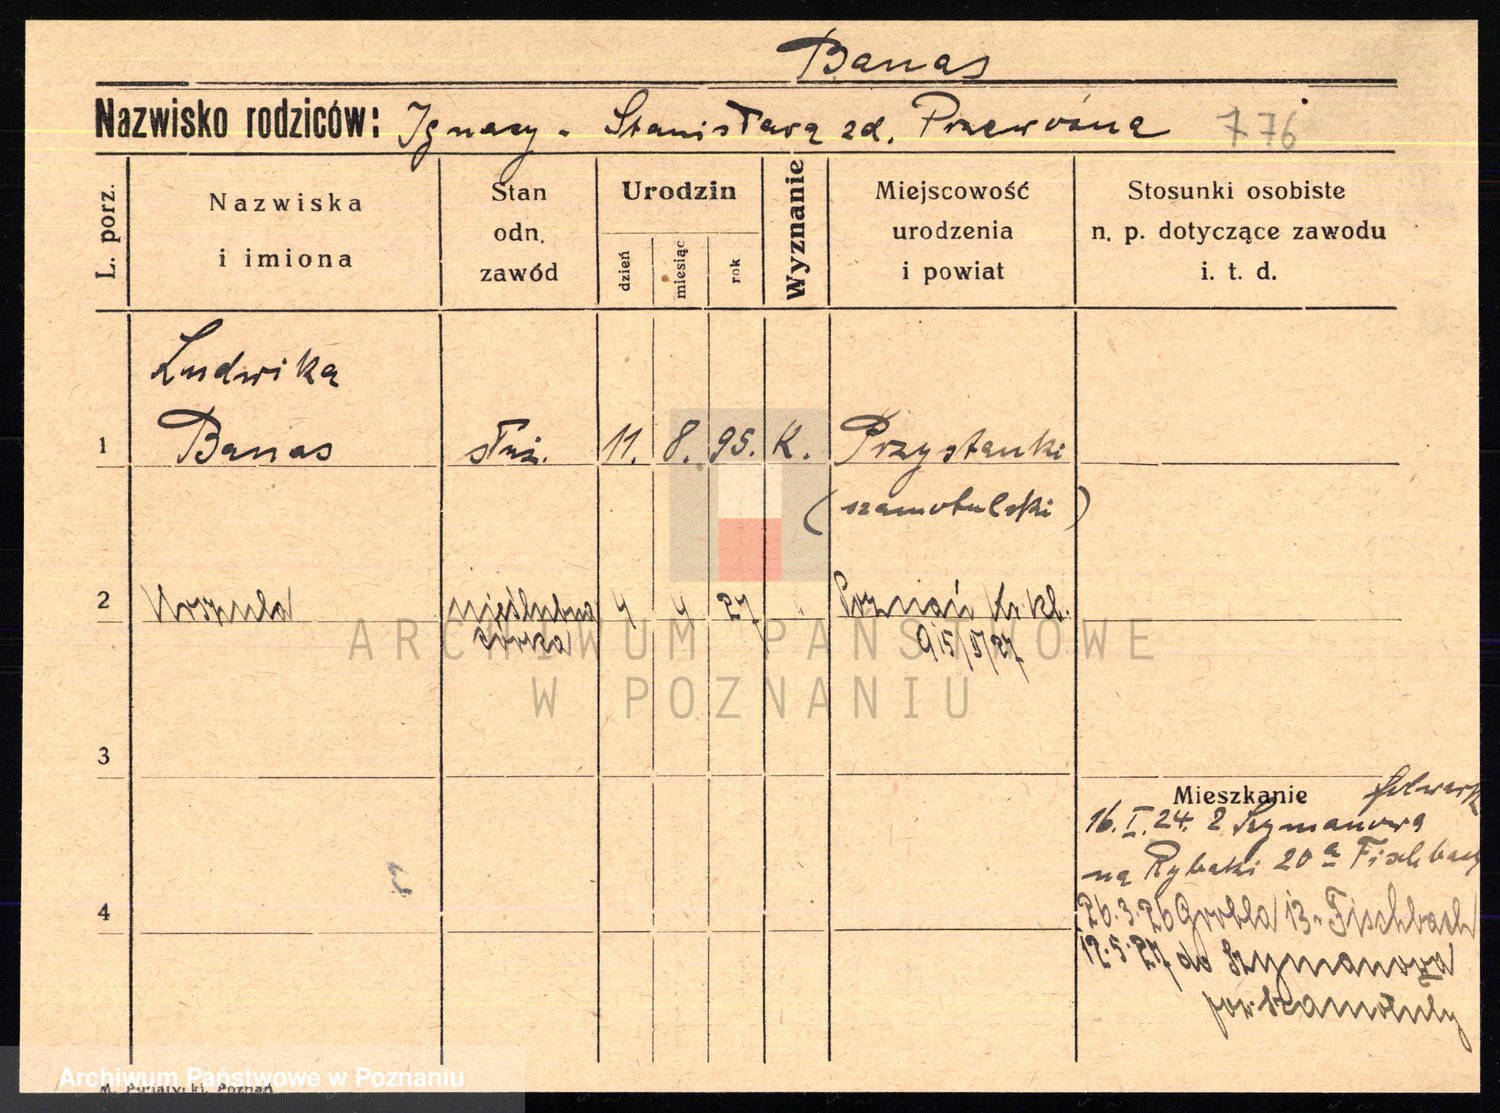 Banas
Nazwisko rodziców: Ignacy - Stanisława zd. Przewoźna 776
L. porz.
Nazwiska
i imiona
Stan
odn.
zawód
Urodzin
dzień
miesiąc
rok
Wyznanie
Miejscowość
urodzenia
i powiat
Stosunki osobiste
n. p. dotyczące zawodu
i. t. d.
Ludwika
1 Banas służ. 11. 8. 95. K. Przystanki
(szamotulski)
2 Urszula nieślubna 4 4 27 " Poznań Kr. kl.
córka 915/5/27
ARCHIWUM PAŃSTWOWE
W POZNANIU
3
Mieszkanie folwark
16. I. 24. z Szymanowa
na Rybaki 20a Fischbach
4 26.3.26 Grobla 13. Fischbach
12.5.27 do Szymanowa
pow. Szamotuły
Archiwum Państwowe w Poznaniu